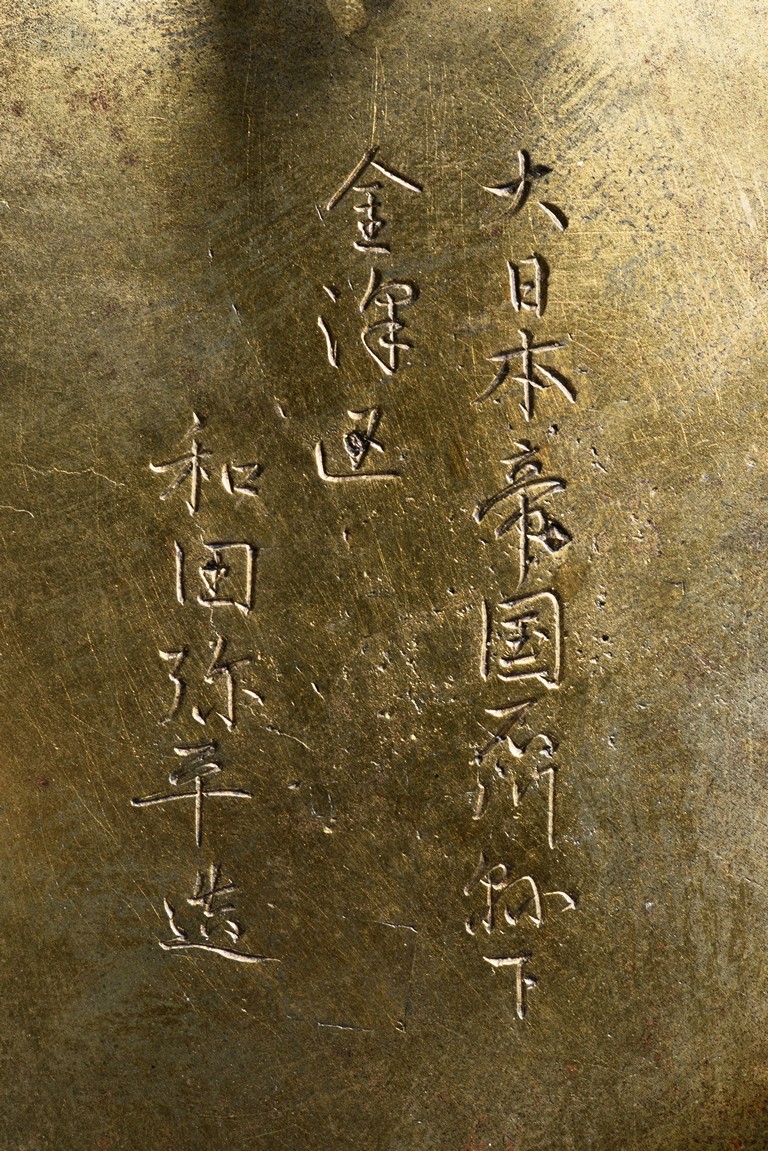 大日本帝国石川縣下
金澤区
和田弥平造